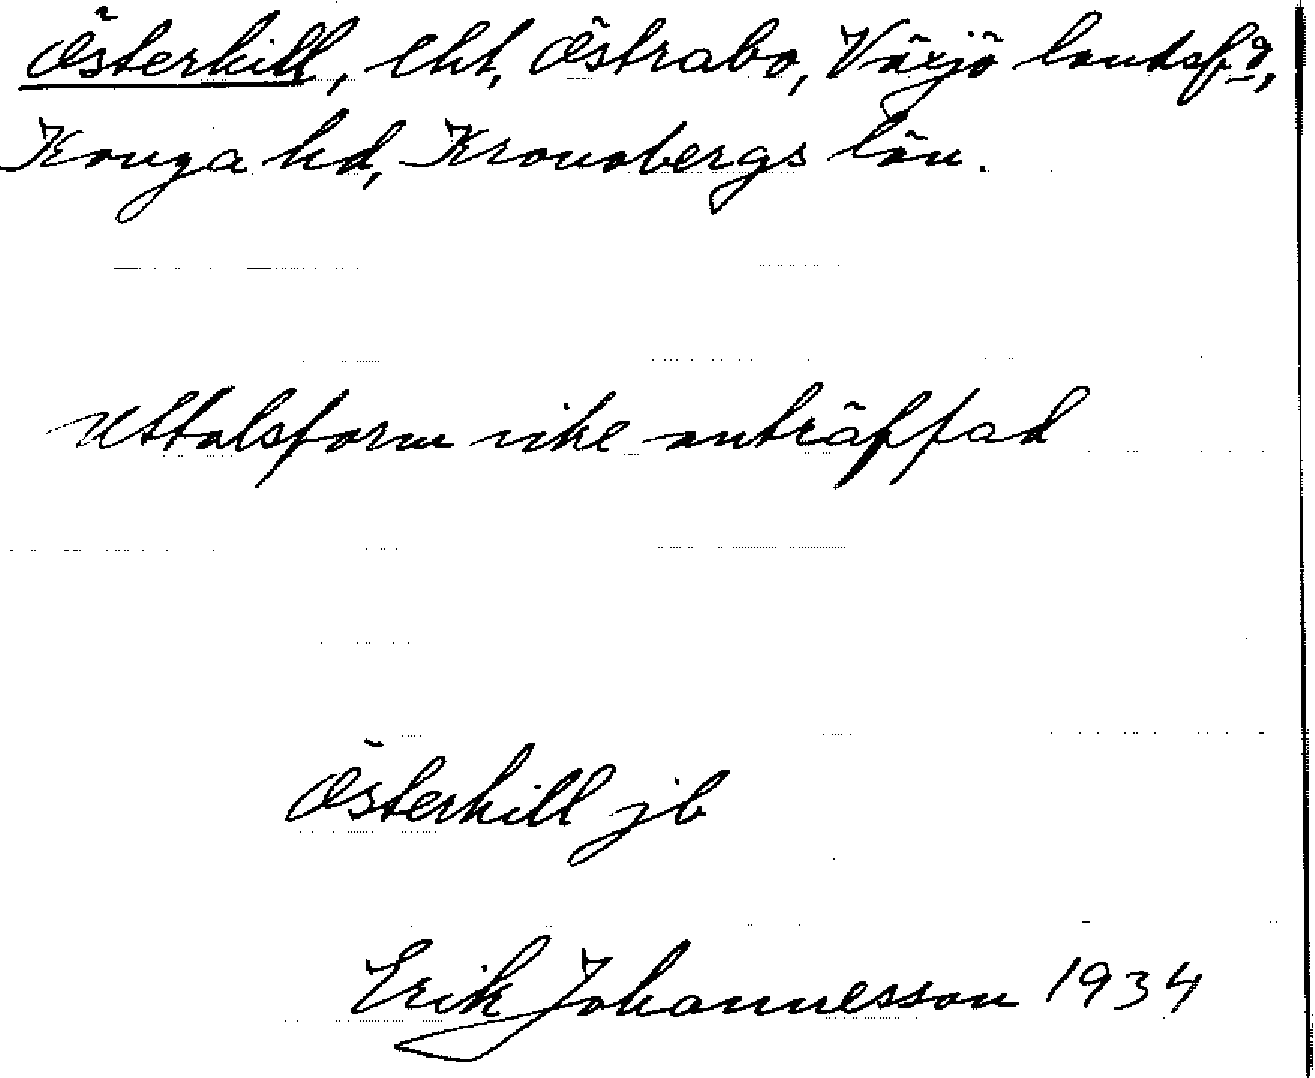 Österkill, lht, Östrabo, Växjö landsfg,
Konga hd, Kronobergs län.
Uttalsform icke anträffad
Österkill jb
Erik Johannesson 1934